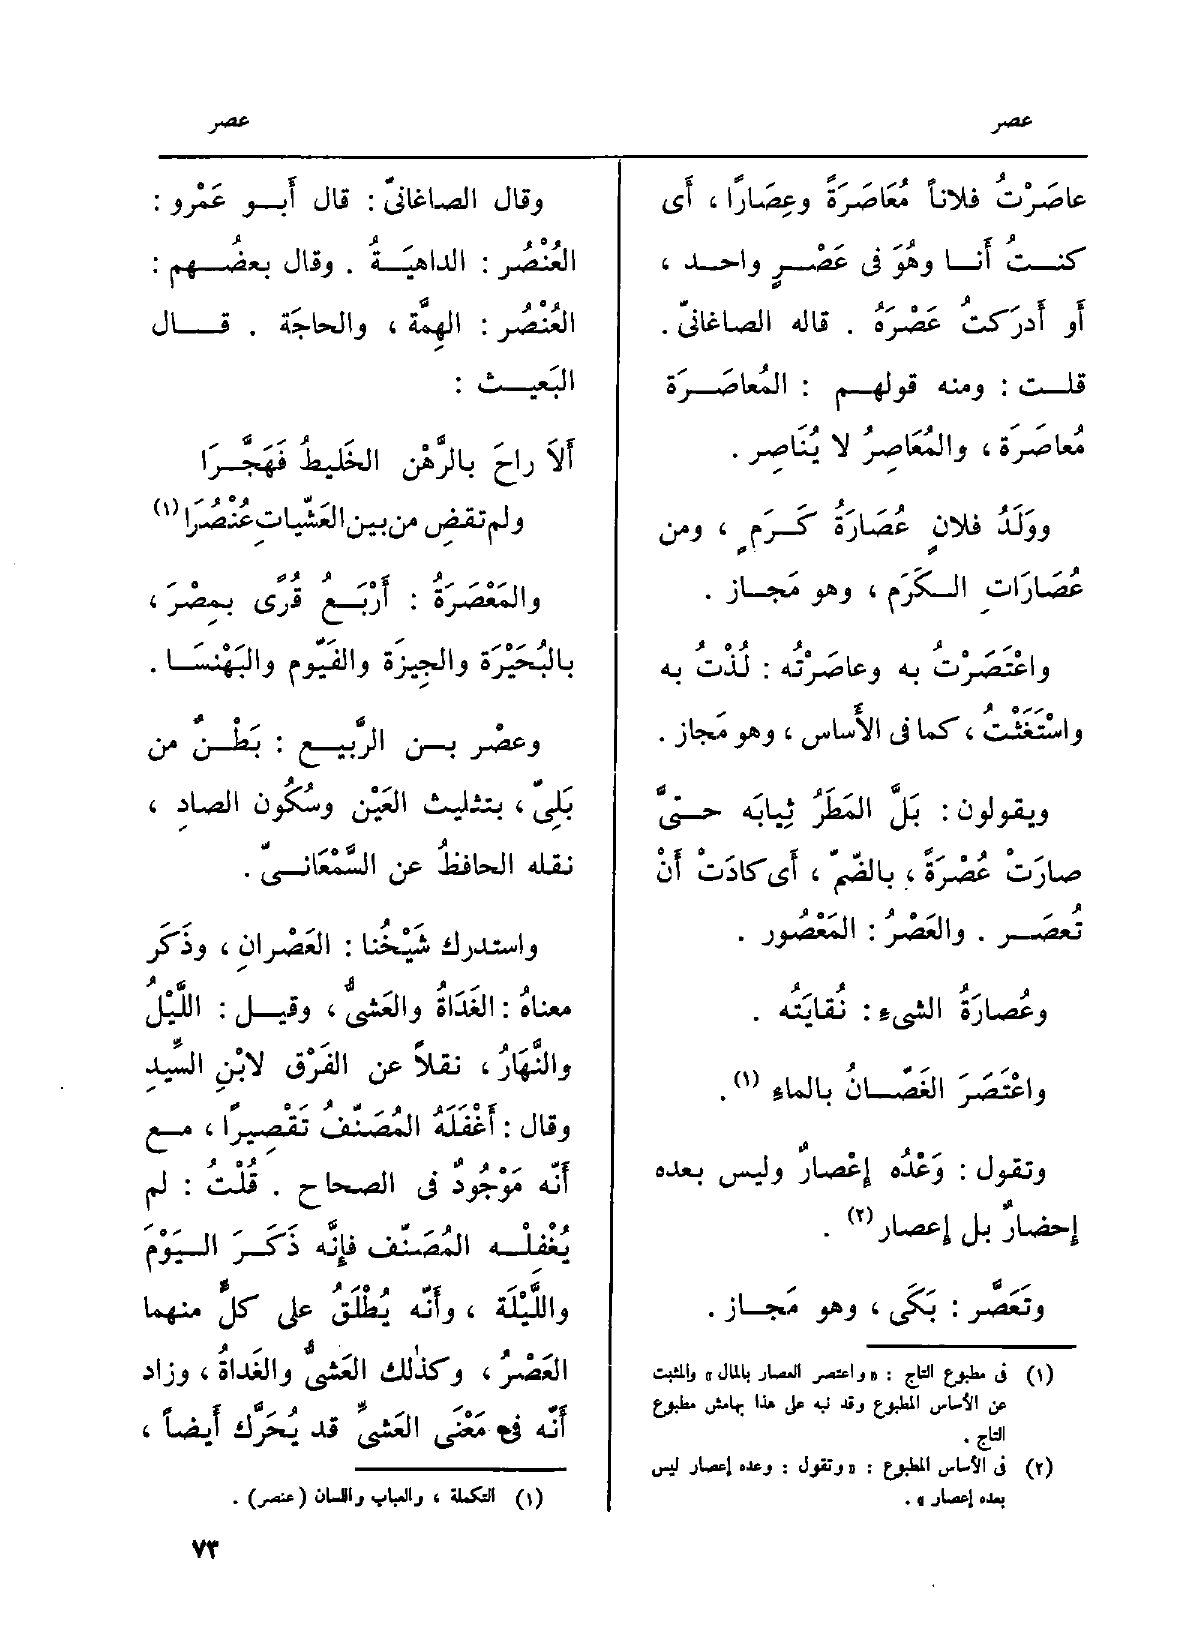 عصر
عصر
عاصَرْتُ فلاناً مُعَاصَرَةً وعِصَارًا ، أَى
كنــتُ أَنــا وهُوَ فى عَصْــرٍ واحــد ،
أَو أَدرَكتُ عَصْرَهُ . قاله الصاغانىّ .
قلــت : ومنه قولهــم : المُعاصَــرَة
مُعاصَرَة ، والمُعَاصِرُ لا يُنَاصِر .
ووَلَدُ فلانٍ عُصَارَةُ كَــرَمٍ ، ومن
عُصَارَاتِ الــكَرَم ، وهو مَجــاز .
واعْتَصَرْتُ به وعاصَرْتُه : لُذْتُ به
واسْتَغَثْتُ ، كما فى الأَساس ، وهو مَجاز .
ويقولون : بَلَّ المَطَرُ ثِيابَه حــتىَّ
صارَتْ عُصْرَةً ، بالضّمّ ، أَى كادَتْ أَنْ
تُعصَــر . والعَصْرُ : المَعْصُور .
وعُصارَةُ الشىءِ : نُقايَتُه .
واعْتَصَرَ الغَصّــانُ بالماءِ (١) .
وتقول : وَعْدُه إِعْصارٌ وليس بعده
إِحضارٌ بل إِعصار (٢) .
وتَعَصَّر : بَكَى ، وهو مَجــاز .
(١) فى مطبوع التاج : «واعتصر العصار بالمال » والمثبت
عن الأساس المطبوع وقد نبه على هذا بهامش مطبوع
التاج .
(٢) فى الأساس المطبوع : «وتقول : وعده إعصار ليس
بعده إعصار » .
وقال الصاغانىّ : قال أَبــو عَمْرو :
العُنْصُر : الداهيَــةُ . وقال بعضُــهم :
العُنْصُر : الهِمَّة ، والحاجَة . قــال
البَعيــث :
أَلاَ راحَ بالرَّهْن الخَليطُ فَهَجَّــرَا
ولم تقضِ من بين العَشّياتِ عُنْصُرَا (١)
والمَعْصَرَةُ : أَرْبَــعُ قُرًى بمِصْرَ ،
بالبُحَيْرَة والجِيزَة والفَيّوم والبَهْنَســا .
وعصْر بــن الرَّبيــع : بَطْــنٌ من
بَلِىّ ، بتثليث العَيْن وسُكُون الصادِ ،
نقله الحافظُ عن السَّمْعَانــىّ .
واستدرك شَيْخُنا : العَصْرانِ ، وذَكَر
معناهُ : الغَدَاةُ والعَشىُّ ، وقيــل : اللَّيْلُ
والنَّهَارُ ، نقلاً عن الفَرْق لابْنِ السِّيدِ
وقال : أَغْفَلَهُ المُصَنّفُ تَقْصِيرًا ، مــع
أَنّه مَوْجُودٌ فى الصحاح . قُلْتُ : لم
يُغْفِلْــه المُصَنّف فإِنَّه ذَكَــرَ الــيَوْمَ
واللَّيْلَة ، وأَنّه يُطْلَقُ على كلٍّ منهما
العَصْرُ ، وكذلك العَشىُّ والغَداةُ ، وزاد
أَنّه فى مَعْنَى العَشىِّ قد يُحَرَّك أَيضاً ،
(١) التكملة ، والعباب واللسان (عنصر) .
٧٣